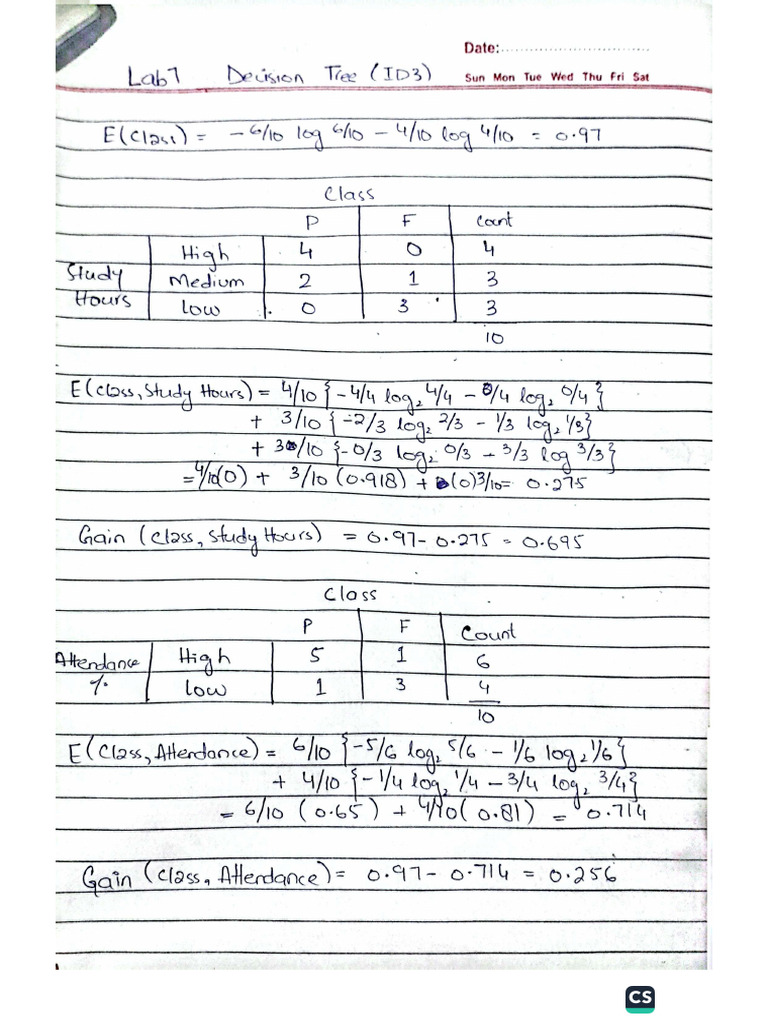 Date:
Lab7 Decision Tree (ID3)
Sun Mon Tue Wed Thu Fri Sat
E(Class) = -6/10 log 6/10 - 4/10 log 4/10 = 0.97
Class
P F Count
Study Hours
High 4 0 4
Medium 2 1 3
Low 0 3 3
10
E(Class, Study Hours) = 4/10 {-4/4 log₂ 4/4 - 0/4 log₂ 0/4}
+ 3/10 {-2/3 log₂ 2/3 - 1/3 log₂ 1/3}
+ 3/10 {-0/3 log₂ 0/3 - 3/3 log 3/3}
= 4/10(0) + 3/10 (0.918) + (0)3/10 = 0.275
Gain (Class, Study Hours) = 0.97 - 0.275 = 0.695
Class
P F Count
Attendance %
High 5 1 6
Low 1 3 4
10
E(Class, Attendance) = 6/10 {-5/6 log₂ 5/6 - 1/6 log₂ 1/6}
+ 4/10 {-1/4 log₂ 1/4 - 3/4 log₂ 3/4}
= 6/10 (0.65) + 4/10 (0.81) = 0.714
Gain (Class, Attendance) = 0.97 - 0.714 = 0.256
CS